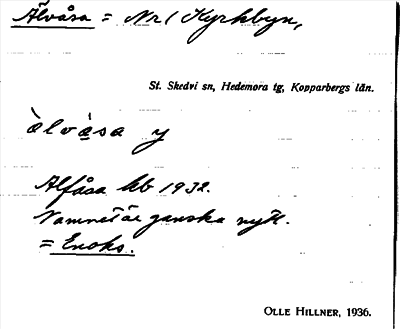 Älvåsa = Nr 1 Kyrkbyn,
St. Skedvi sn, Hedemora tg, Kopparbergs län.
àlvàsa y
Alfåsa kb 1932.
Namnet är ganska nytt.
= Enoks.
OLLE HILLNER, 1936.